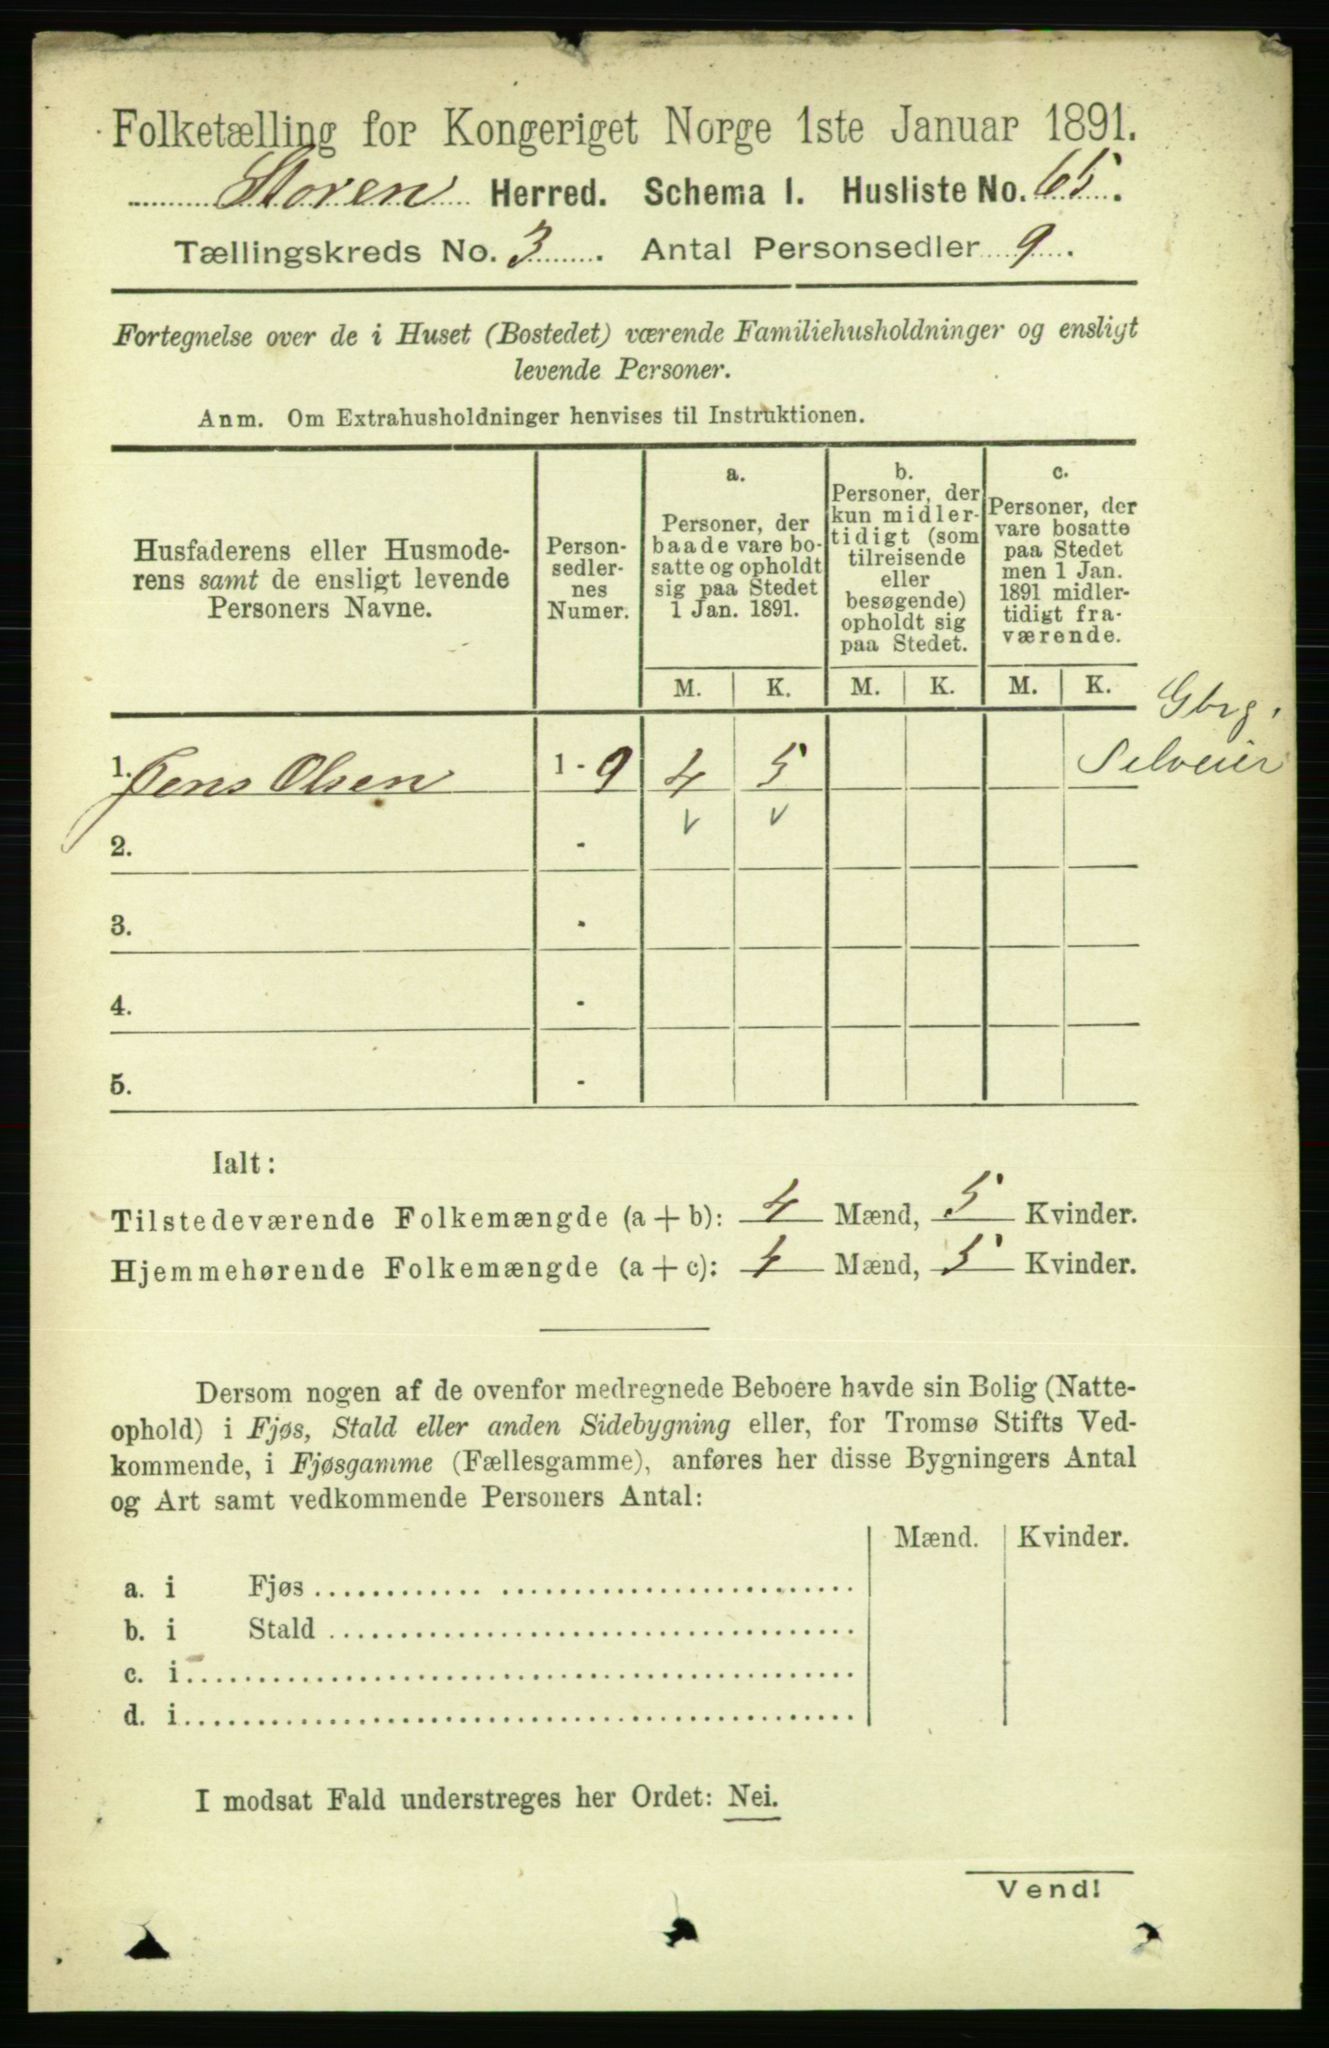 Folketælling for Kongeriget Norge 1ste Januar 1891.
Støren Herred. Schema I. Husliste No. 65.
Tællingskreds No. 3. Antal Personsedler 9.
Fortegnelse over de i Huset (Bostedet) værende Familiehusholdninger og ensligt
levende Personer.
Anm. Om Extrahusholdninger henvises til Instruktionen.
Husfaderens eller Husmode-
rens samt de ensligt levende
Personers Navne.
Person-
sedler-
nes
Numer.
a.
Personer, der
baade vare bo-
satte og opholdt
sig paa Stedet
1 Jan. 1891.
b.
Personer, der
kun midler-
tidigt (som
tilreisende
eller
besøgende)
opholdt sig
paa Stedet.
c.
Personer, der
vare bosatte
paa Stedet
men 1 Jan.
1891 midler-
tidigt fra-
værende.
M. K. M. K. M. K.
Gbrg.
Selveier
1. Jens Olsen 1 - 9 4 5
2. -
3. -
4. -
5. -
Ialt:
Tilstedeværende Folkemængde (a + b): 4 Mænd, 5 Kvinder.
Hjemmehørende Folkemængde (a + c): 4 Mænd, 5 Kvinder.
Dersom nogen af de ovenfor medregnede Beboere havde sin Bolig (Natte-
ophold) i Fjøs, Stald eller anden Sidebygning eller, for Tromsø Stifts Ved-
kommende, i Fjøsgamme (Fællesgamme), anføres her disse Bygningers Antal
og Art samt vedkommende Personers Antal:
Mænd. Kvinder.
a. i Fjøs
b. i Stald
c. i
d. i
I modsat Fald understreges her Ordet: Nei.
Vend!